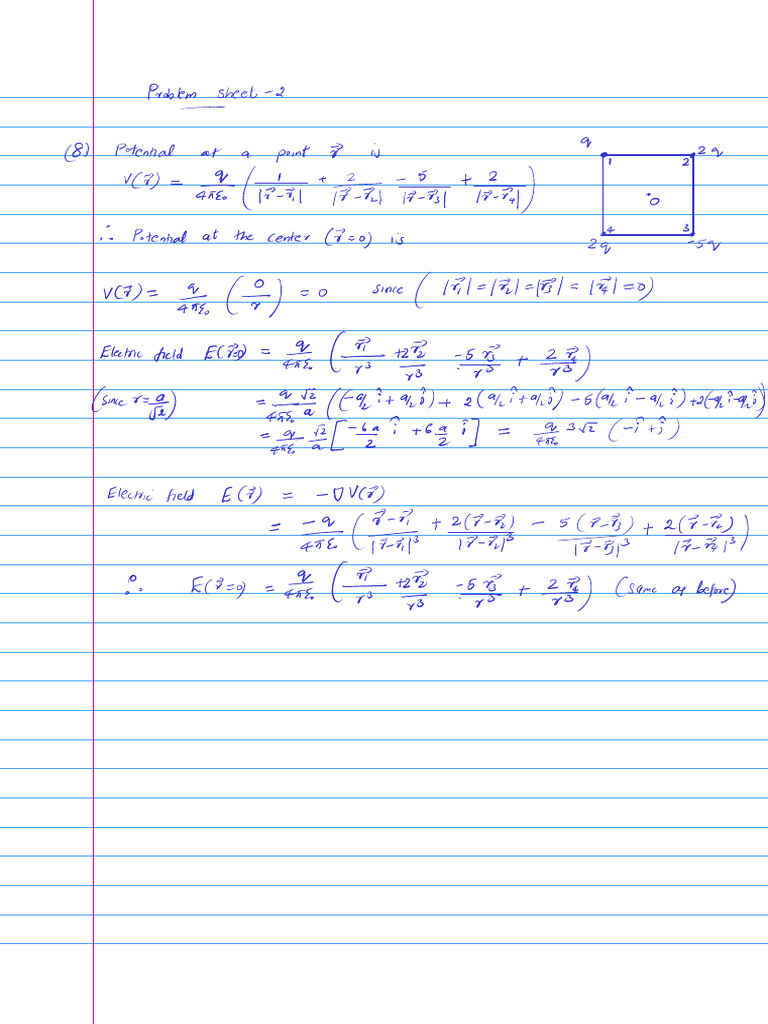 Problem sheet - 2
(8) Potential at a point r⃗ is
V(r⃗) = q/4πε₀ ( 1/|r⃗-r⃗₁| + 2/|r⃗-r⃗₂| - 5/|r⃗-r⃗₃| + 2/|r⃗-r⃗₄| )
q 2q
1 2
O
4 3
2q -5q
∴ Potential at the center (r⃗=0) is
V(r⃗) = q/4πε₀ ( 0/r ) = 0 since ( |r⃗₁| = |r⃗₂| = |r⃗₃| = |r⃗₄| = 0 )
Electric field E(r⃗=0) = q/4πε₀ ( r⃗₁/r³ + 2r⃗₂/r³ - 5r⃗₃/r³ + 2r⃗₄/r³ )
(since r = a/√2) = q/4πε₀ √2/a ( (-a/2 î + a/2 ĵ) + 2(a/2 î + a/2 ĵ) - 5(a/2 î - a/2 ĵ) + 2(-a/2 î - a/2 ĵ) )
= q/4πε₀ √2/a [ -6a/2 î + 6a/2 ĵ ] = q/4πε₀ 3√2 ( -î + ĵ ).
Electric field E(r⃗) = -∇V(r⃗)
= -q/4πε₀ ( r⃗-r⃗₁/|r⃗-r⃗₁|³ + 2(r⃗-r⃗₂)/|r⃗-r⃗₂|³ - 5(r⃗-r⃗₃)/|r⃗-r⃗₃|³ + 2(r⃗-r⃗₄)/|r⃗-r⃗₄|³ )
∴ E(r⃗=0) = q/4πε₀ ( r⃗₁/r³ + 2r⃗₂/r³ - 5r⃗₃/r³ + 2r⃗₄/r³ ) (same as before)